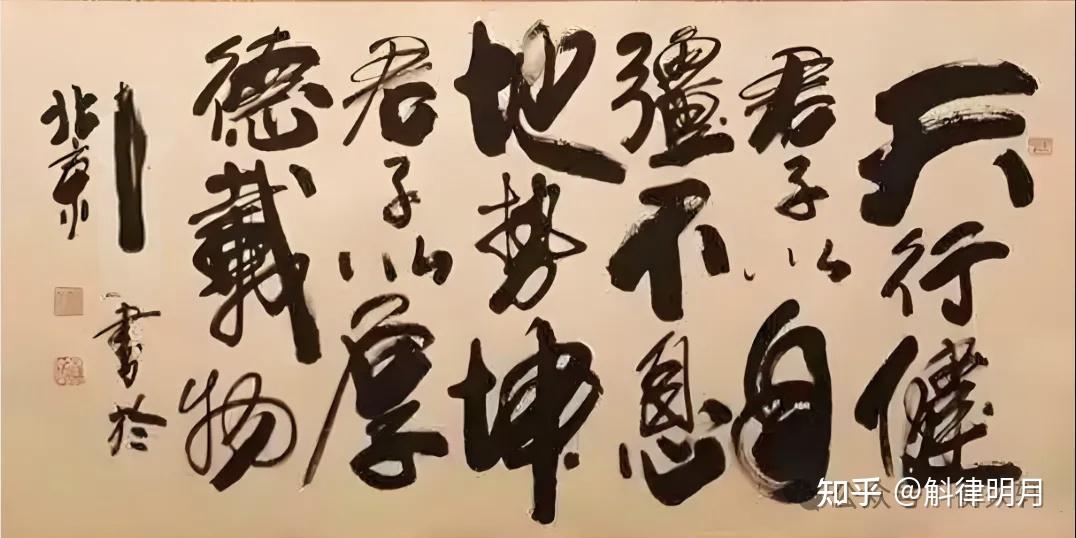 天行健
君子以自
彊不息
地势坤
君子以厚
德載物
書於
北京
知乎 @斛律明月